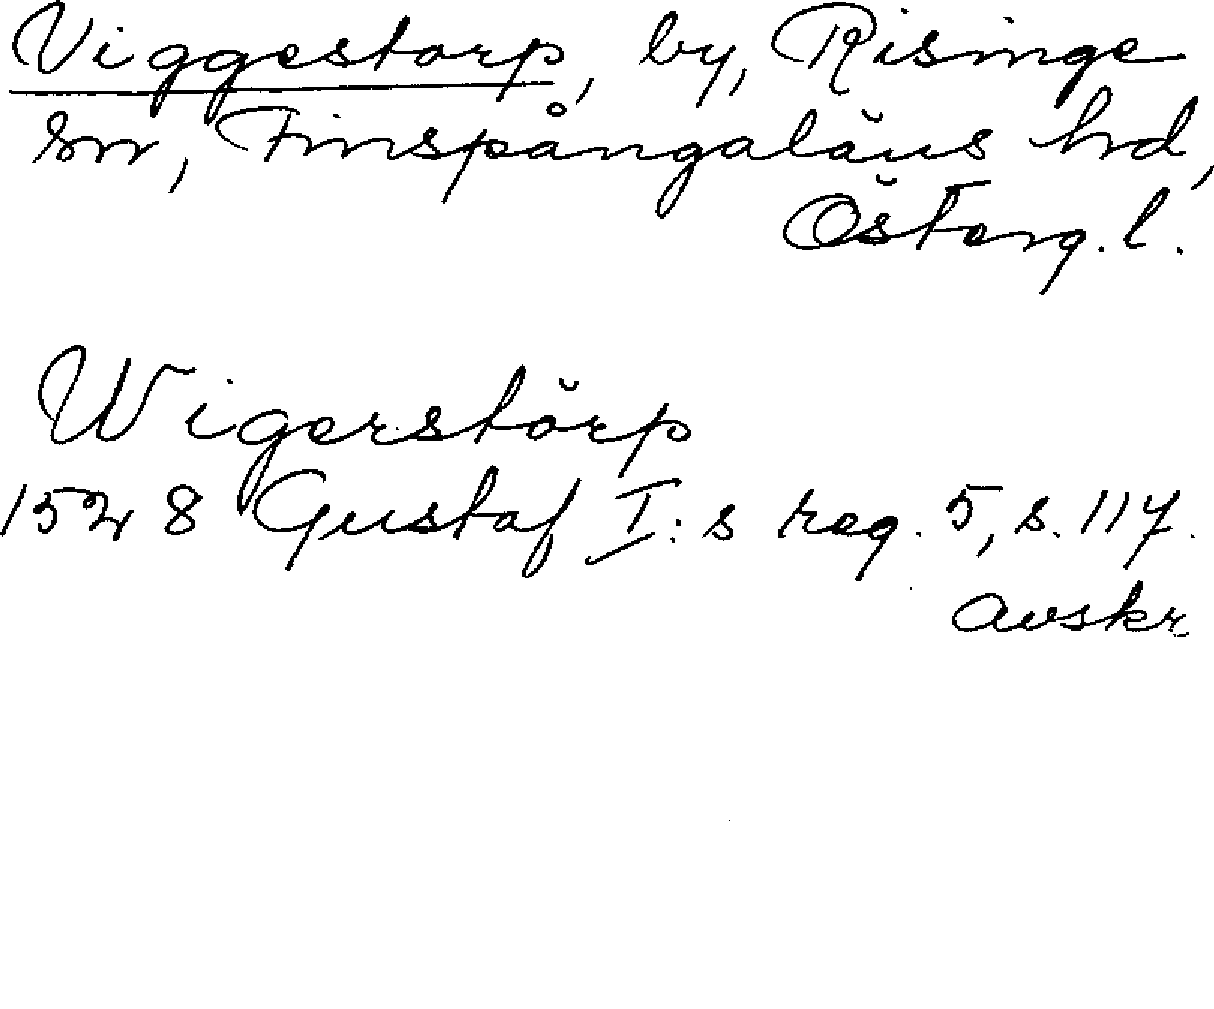 Viggestorp, by, Risinge
sn, Finspångaläns hd,
Österg. l.
Wigerstörp
1528 Gustaf I:s reg. 5, s. 117.
avskr.